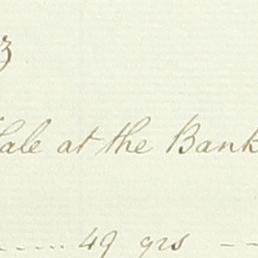 ale at the Bank
49 grs